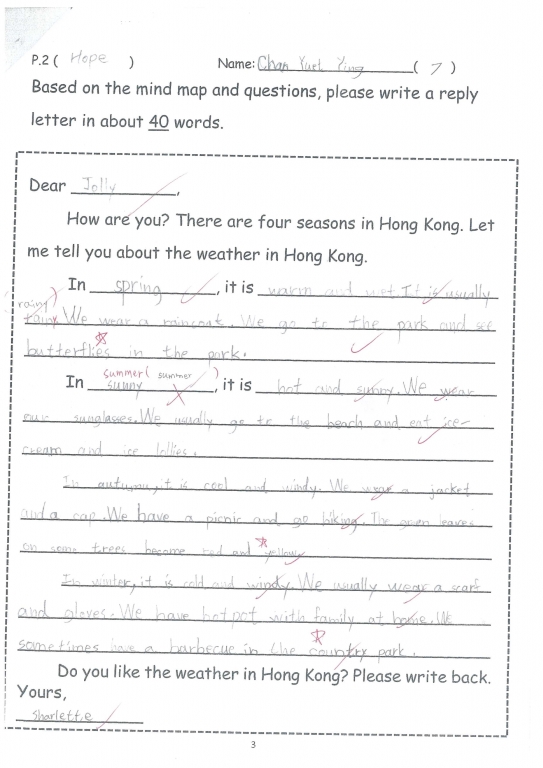 P.2 ( Hope ) Name: Chan Yuet Ying ( 7 )
Based on the mind map and questions, please write a reply
letter in about 40 words.
Dear Jolly,
How are you? There are four seasons in Hong Kong. Let
me tell you about the weather in Hong Kong.
In spring, it is warm and wet. It is usually
rainy
rainy. We wear a raincoat. We go to the park and see
butterflies in the park.
summer( summer )
In sunny, it is hot and sunny. We wear
our sunglasses. We usually go to the beach and eat ice-
cream and ice lollies.
In autumn, it is cool and windy. We wear a jacket
and a cap. We have a picnic and go hiking. The green leaves
on some trees become red and yellow.
In winter, it is cold and windy. We usually wear a scarf
and gloves. We have hotpot with family at home. We
sometimes have a barbecue in the country park.
Do you like the weather in Hong Kong? Please write back.
Yours,
Sharlette
3